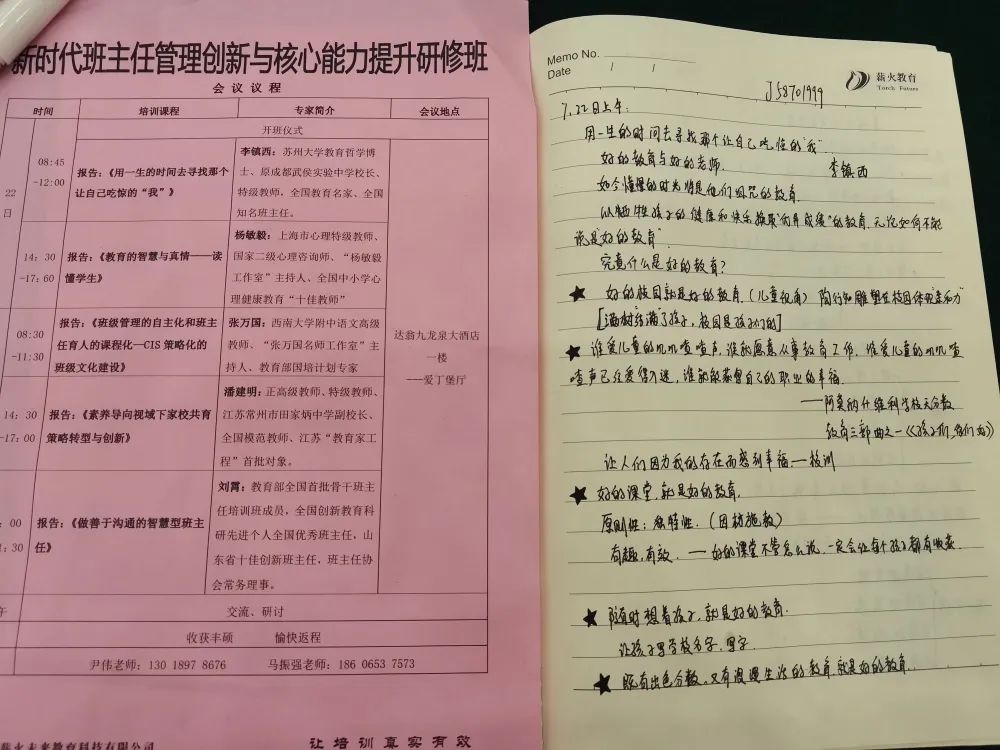 新时代班主任管理创新与核心能力提升研修班
会议议程
时间 培训课程 专家简介 会议地点
开班仪式
22
日
08:45
-12:00
报告：《用一生的时间去寻找那个
让自己吃惊的“我”》
李镇西：苏州大学教育哲学博
士、原成都武侯实验中学校长、
特级教师，全国教育名家、全国
知名班主任。
14: 30
-17: 60
报告：《教育的智慧与真情——读
懂学生》
杨敏毅：上海市心理特级教师、
国家二级心理咨询师、“杨敏毅
工作室”主持人、全国中小学心
理健康教育“十佳教师”
08:30
-11:30
报告：《班级管理的自主化和班主
任育人的课程化—CIS 策略化的
班级文化建设》
张万国：西南大学附中语文高级
教师、“张万国名师工作室”主
持人、教育部国培计划专家
达翁九龙泉大酒店
一楼
---爱丁堡厅
14: 30
-17: 00
报告：《素养导向视域下家校共育
策略转型与创新》
潘建明：正高级教师、特级教师、
江苏常州市田家炳中学副校长、
全国模范教师、江苏“教育家工
程”首批对象。
: 00
1: 30
报告：《做善于沟通的智慧型班主
任》
刘霄：教育部全国首批骨干班主
任培训班成员，全国创新教育科
研先进个人全国优秀班主任，山
东省十佳创新班主任，班主任协
会常务理事。
午
交流、研讨
收获丰硕 愉快返程
尹伟老师：130 1897 8676 马振强老师：186 0653 7573
薪火未来教育科技有限公司 让培训真实有效
Memo No.
Date / /
薪火教育
Torch Future
J58701999
7.22日上午：
用一生的时间去寻找那个让自己吃惊的“我”
好的教育与好的老师. 李镇西
如今懂憬的时光将是他们诅咒的教育.
以牺牲孩子的健康和快乐换取“的教育.无论如何不能
说是“好的教育”
究竟什么是好的教育？
★ 好的校园就是好的教育.（儿童视角） 陶行知雕塑在校园体现“亲和力”
[孩子，校园是孩子们的]
★ 谁爱儿童的叽叽喳喳声，谁就愿意从事教育工作，谁爱儿童的叽叽喳
喳声已经爱得入迷，谁就能获得自己的职业的幸福.
——阿莫纳什维利
教育三部曲之一《孩子们，你们好》
让人们因为我的存在而感到幸福.—校训
★ 好的课堂，就是好的教育.
原则性：独特性.（因材施教）
有趣，有效. ——好的课堂不管怎么说，一定会让每个孩子都有收获.
★ 随时想着孩子，就是好的教育.
让孩子写学校名字.
★ 既有出色分数，又有浪漫生活的教育.就是好的教育.